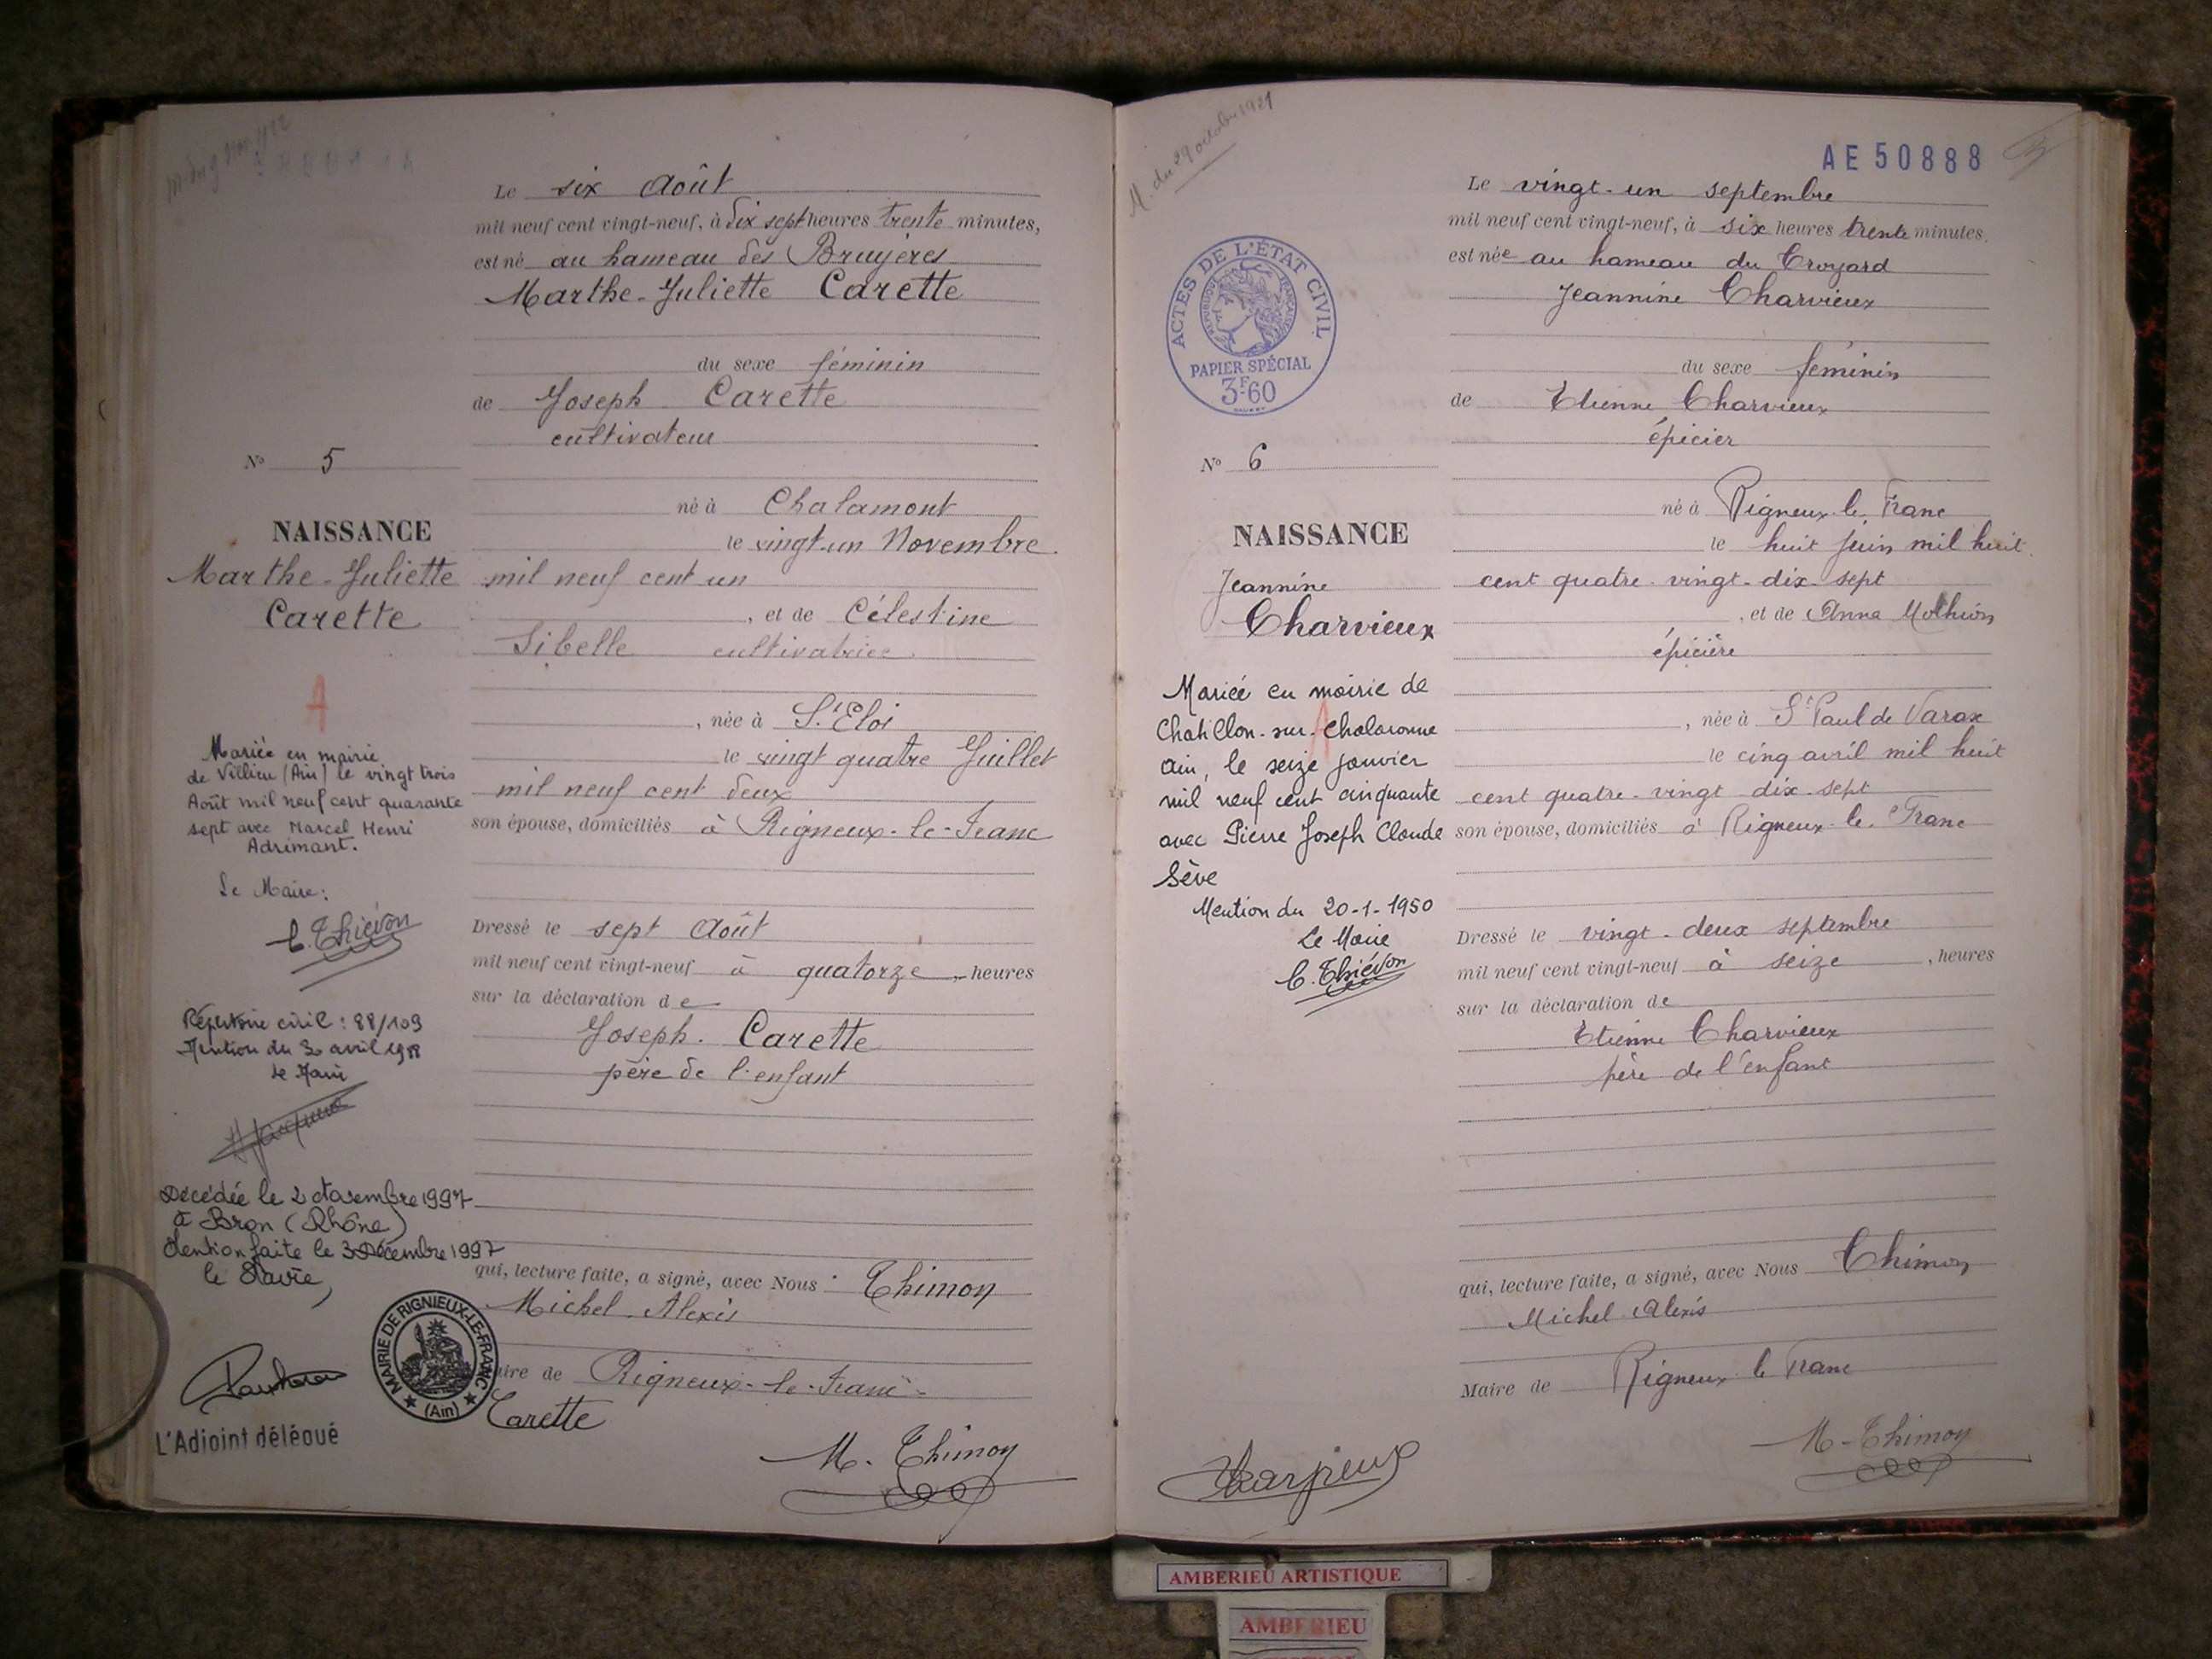 Le six Août
mil neuf cent vingt-neuf, à dix sept heures trente minutes,
est né au hameau des Bruyères
Marthe-Juliette Carette
du sexe féminin
de Joseph Carette
cultivateur
né à Chalamont
le vingt-un Novembre
mil neuf cent un
, et de Célestine
Sibelle cultivatrice
, née à St Eloi
le vingt quatre Juillet
mil neuf cent deux
son épouse, domiciliés à Rigneux-le-Franc
Dressé le sept Août
mil neuf cent vingt-neuf à quatorze, heures
sur la déclaration de
Joseph. Carette
père de l'enfant
qui, lecture faite, a signé, avec Nous : Thimon
Michel Alexis
aire de Rigneux-le-Franc-
Carette
M. Thimon
No 5
NAISSANCE
Marthe-Juliette
Carette
A
Mariée en mairie
de Villieu (Ain) le vingt trois
Août mil neuf cent quarante
sept avec Marcel Henri
Adrimant.
Le Maire:
C. Thiévon
Répertoire civil : 88/109
Mention du avril 1988
le Maire
Décédée le 2 décembre 1997
à Bron (Rhône)
Mention faite le 3 Décembre 1997
le Maire,
MAIRIE DE RIGNIEUX-LE-FRANC
(Ain)
L'Adjoint délégué
M. du 29 octobre 1921
AE 50888
ACTES DE L'ÉTAT CIVIL
RÉPUBLIQUE FRANÇAISE
PAPIER SPÉCIAL
3F60
Le vingt-un septembre
mil neuf cent vingt-neuf, à six heures trente minutes,
est née au hameau du Croyard
Jeannine Charvieux
du sexe féminin
de Etienne Charvieux
épicier
né à Rigneux-le-Franc
le huit juin mil huit
cent quatre-vingt-dix-sept
, et de Anna
épicière
, née à St Paul de Varax
le cinq avril mil huit
cent quatre-vingt dix-sept
son épouse, domiciliés à Rigneux-le-Franc
Dressé le vingt-deux septembre
mil neuf cent vingt-neuf à seize, heures
sur la déclaration de
Etienne Charvieux
père de l'enfant
qui, lecture faite, a signé, avec Nous Thimon
Michel Alexis
Maire de Rigneux le Franc
M. Thimon
No 6
NAISSANCE
Jeannine
Charvieux
A
Mariée en mairie de
Chatillon-sur-Chalaronne
Ain, le seize janvier
mil neuf cent cinquante
avec Pierre Joseph Claude
Sève
Mention du 20-1-1950
Le Maire
C. Thiévon
AMBERIEU ARTISTIQUE
AMBERIEU